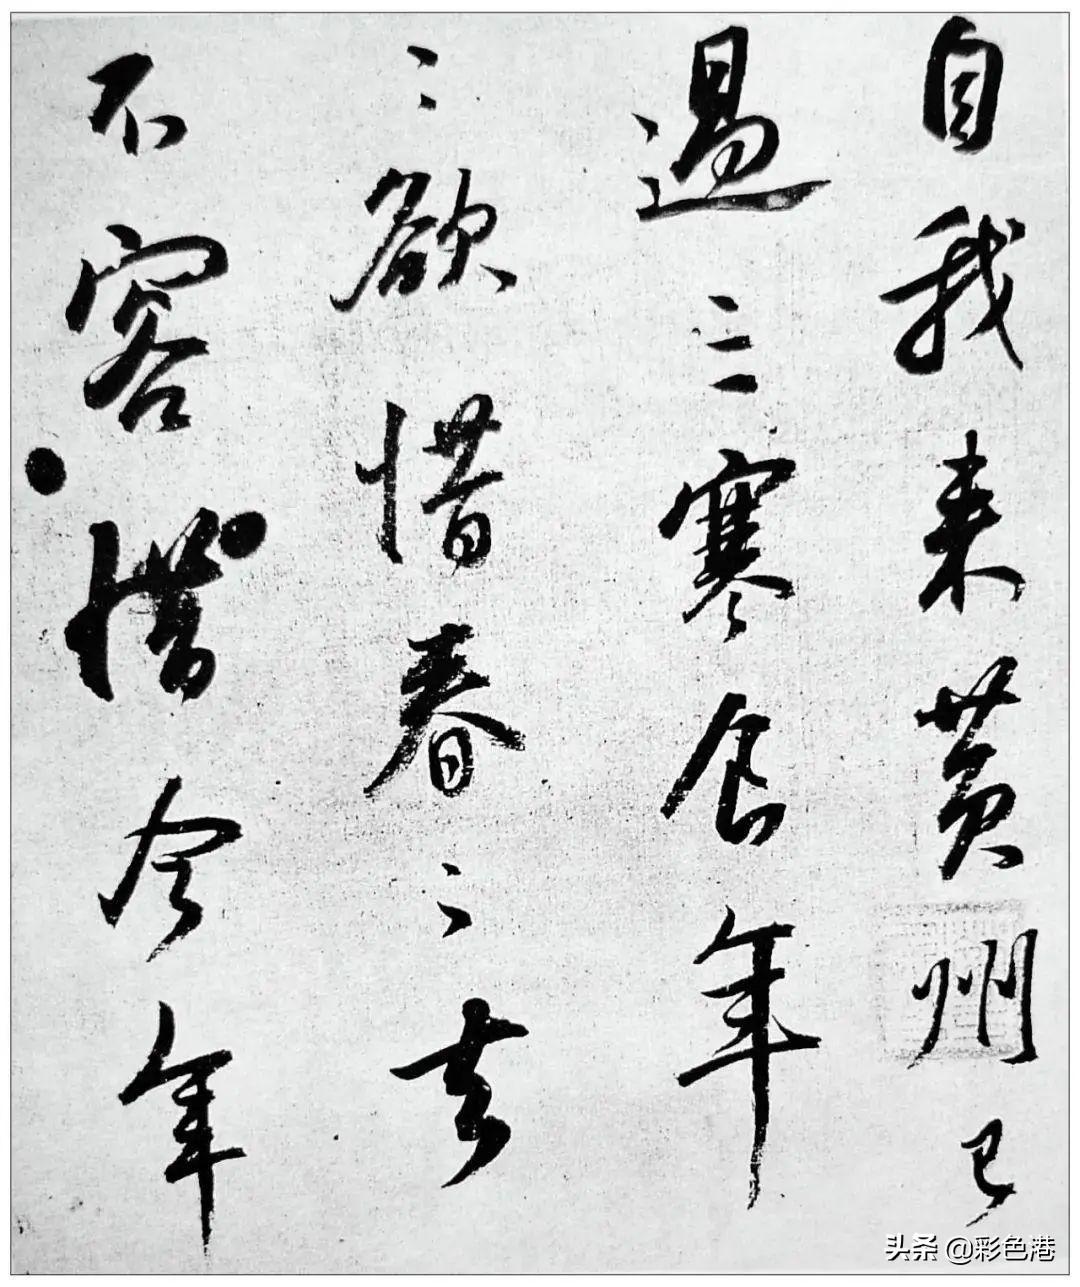 自我来黄州已
過三寒食年
〻欲惜春〻去
不容惜今年
头条 @彩色港